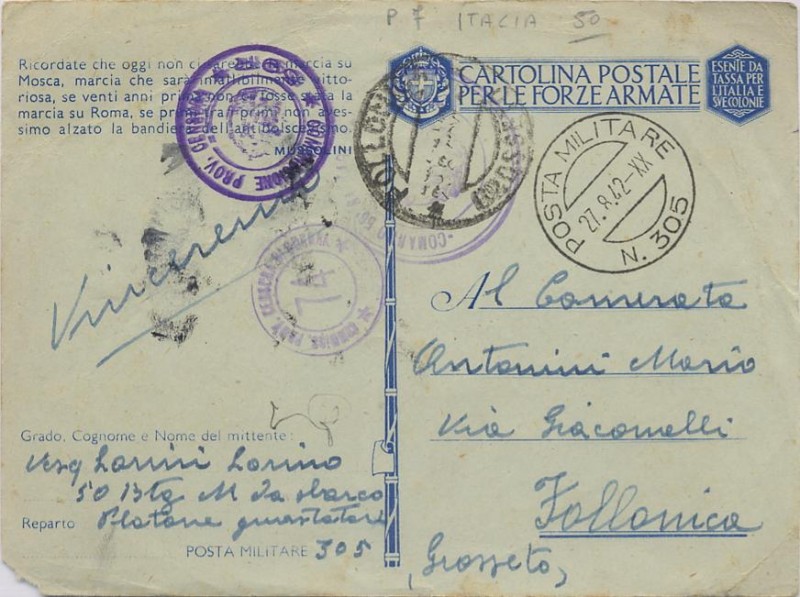 P 7 ITALIA 50
Ricordate che oggi non ci sarebbe la marcia su
Mosca, marcia che sarà infallibilmente vitto-
riosa, se venti anni prima non ci fosse stata la
marcia su Roma, se primi tra i primi non aves-
simo alzato la bandiera dell'antibolscevismo.
MUSSOLINI
CARTOLINA POSTALE
PER LE FORZE ARMATE
ESENTE DA
TASSA PER
L'ITALIA E
SVE COLONIE
COMMISSIONE PROV. CENSURA
FOLLONICA
(GROSSETO)
POSTA MILITARE
27.8.42-XX
N. 305
Vinceremo
COMMISS. PROV. CENSURA
74
Al Camerata
Antonini Mario
Via Giacomelli
Follonica
(Grosseto)
Grado, Cognome e Nome del mittente:
Lorini Lorino
50 Btg M da sbarco
Reparto Platone guastatori
POSTA MILITARE 305